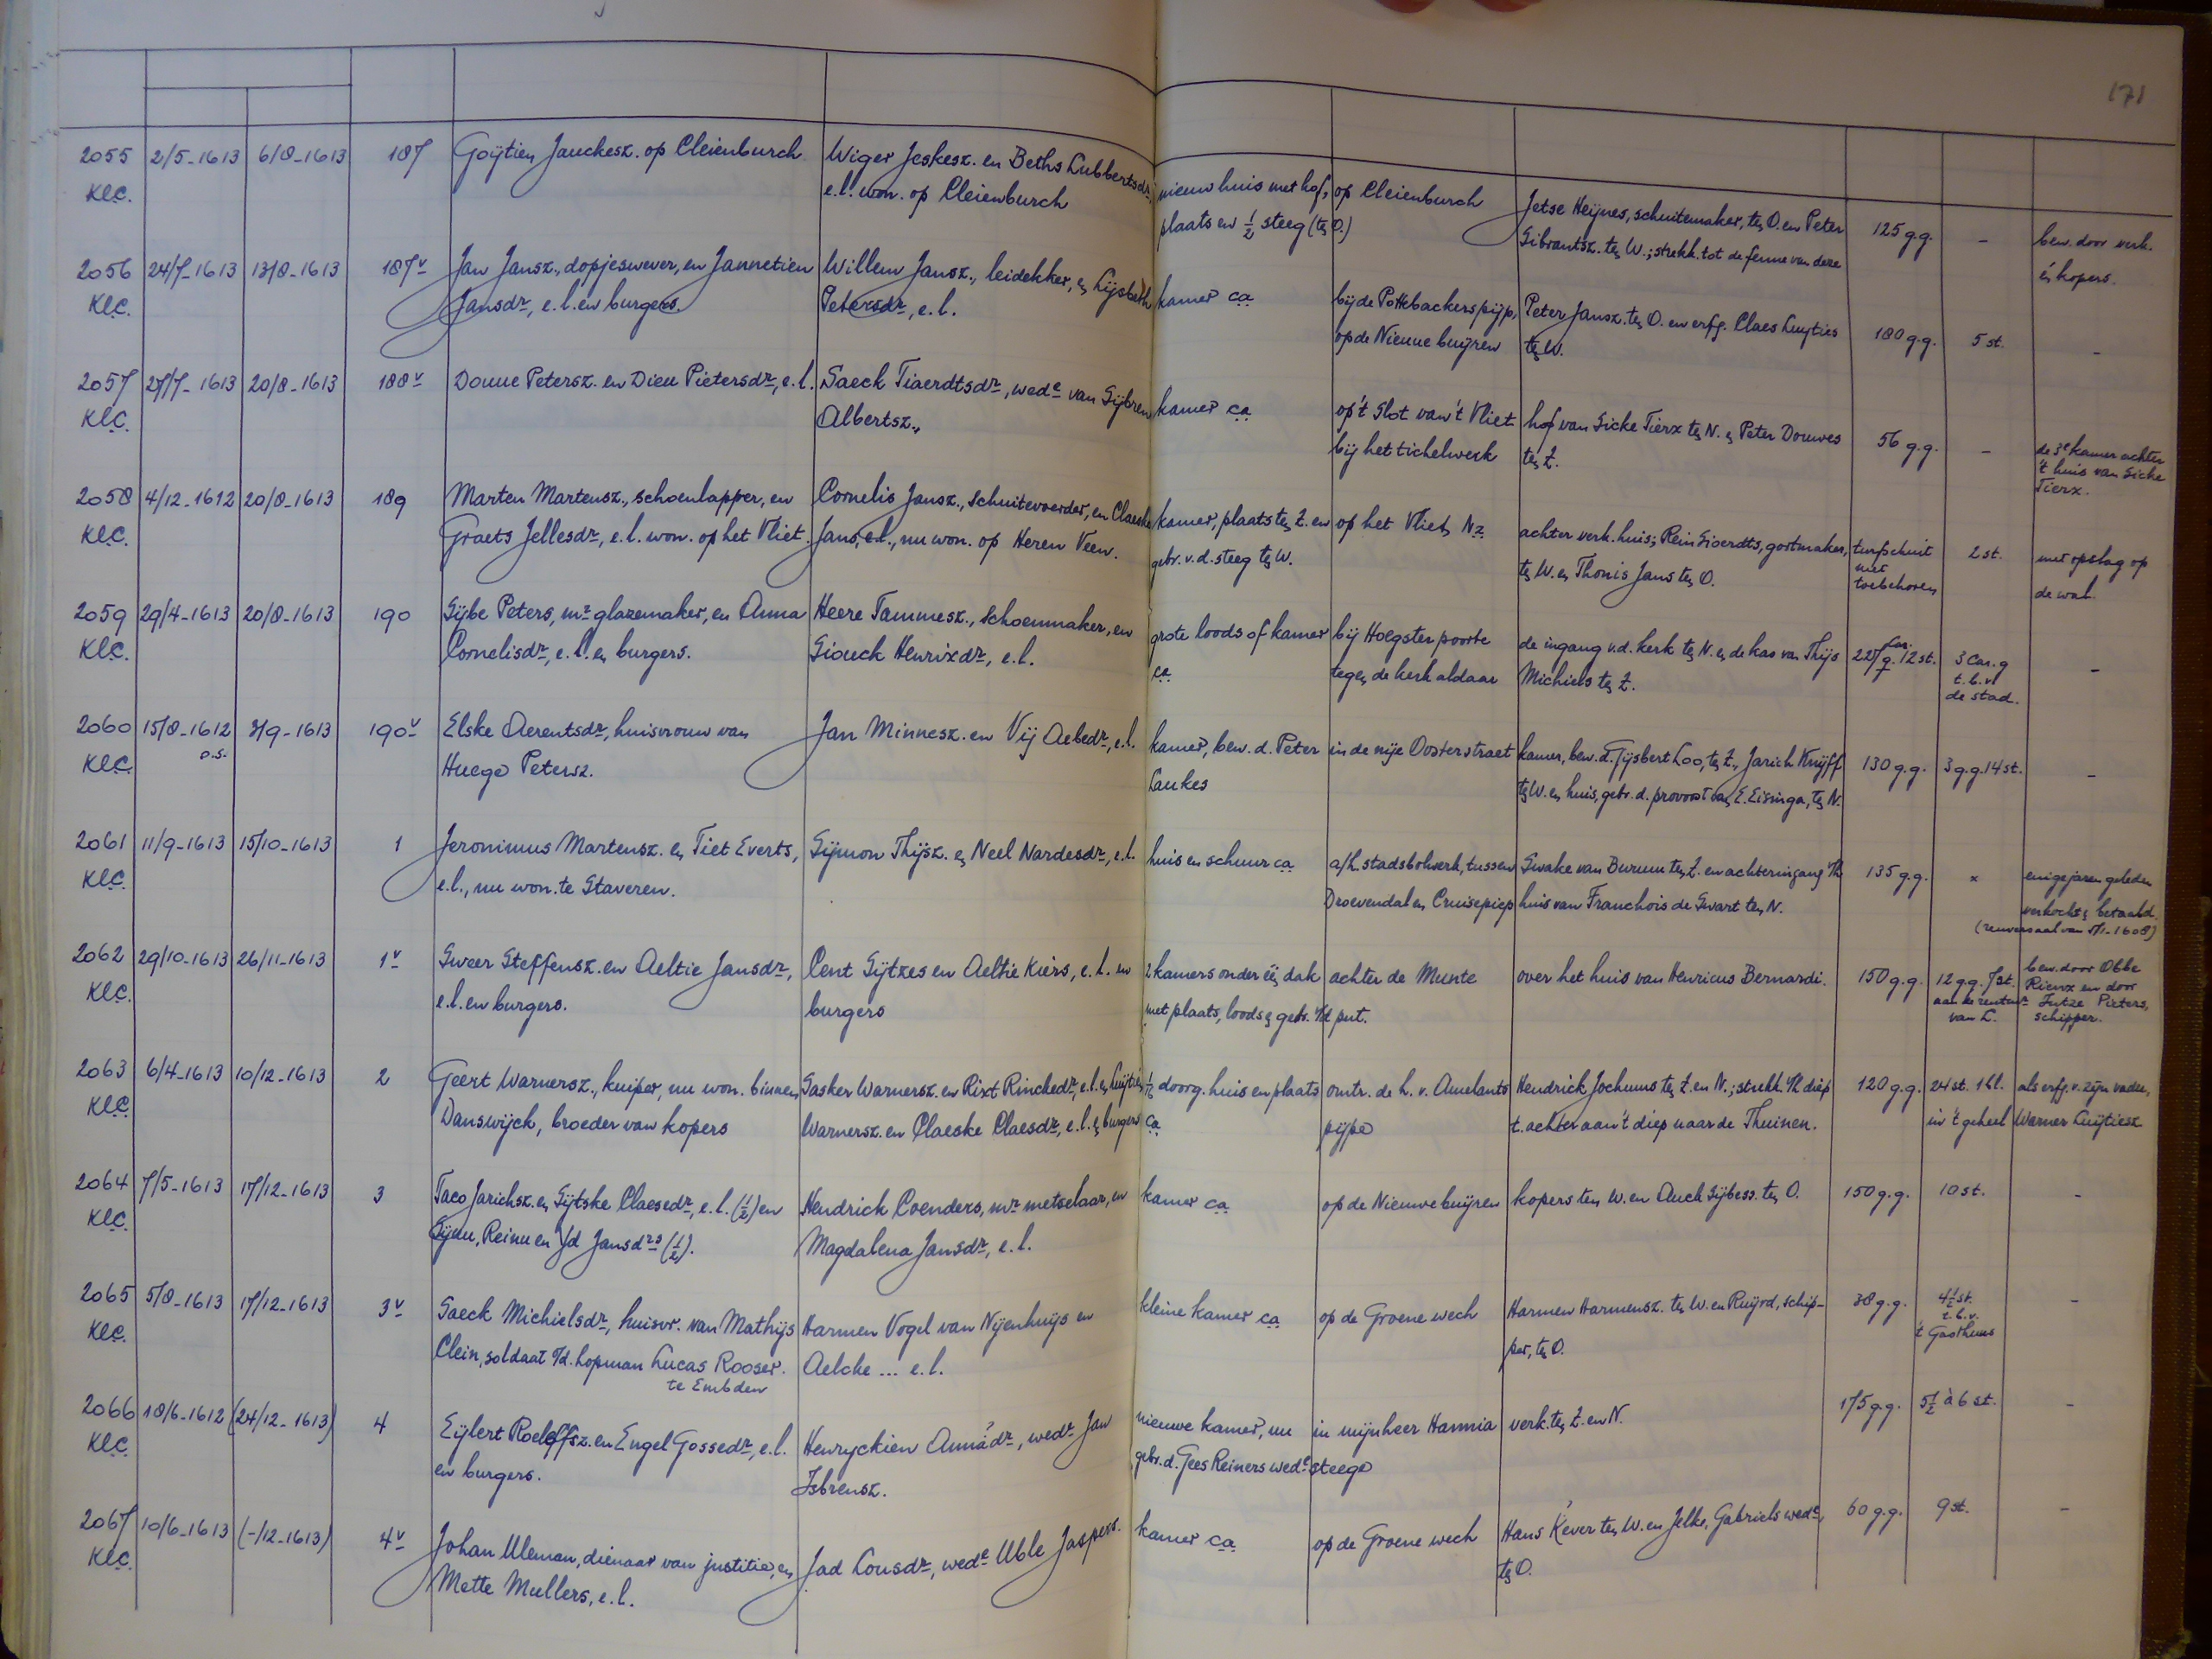 171
2055 2/5-1613 6/8-1613 187 Goÿtien Jauckesz. op Cleienburch Wiger Jeskesz. en Beths Lubbertsdr, nieuw huis met hof, op Cleienburch Jetse Heijnes, schuitemaker, ten O. en Peter 125 g.g. - bew. door verk.
KLC. e.l. won. op Cleienburch plaats en ½ steeg (ten O.) Sibrantsz. ten W.; strekk. tot de fenne van deze én kopers.
2056 24/7-1613 13/8-1613 187v Jan Jansz., dopjeswever, en Jannetien Willem Jansz., leidekker, en Lijsbeth kamer ca bij de Pottebackerspijp, Peter Jansz. ten O. en erfg. Claes Luijties 180 g.g. 5 st. -
KLC. Jansdr, e.l. en burgers. Petersdr, e.l. op de Nieuwe buijren ten W.
2057 27/7-1613 20/8-1613 188v Douue Petersz. en Dieu Pietersdr, e.l. Saeck Tiaerdtsdr, wede van Sijbren kamer ca op 't Slot van 't Vliet hof van Sicke Tierx ten N. en Peter Douwes 56 g.g. - de 3e kamer achter
KLC. Albertsz., bij het tichelwerk ten Z. 't huis van Sicke
Tierx.
2058 4/12-1612 20/8-1613 189 Marten Martensz., schoenlapper, en Cornelis Jansz., schuitevoerder, en Claeske kamer, plaats ten Z. en op het Vliet, Nz. achter verk. huis; Rein Sioerdts, gortmaker, turfschuit 2 st. met opslag op
KLC. Graets Jellesdr, e.l. won. op het Vliet. Jans, e.l., nu won. op Heren Veen. gebr. v.d. steeg ten W. ten W. en Thonis Jans ten O. met de wal.
toebehoren
2059 29/4-1613 20/8-1613 190 Sijbe Peters, mr glazemaker, en Anna Heere Tammesz., schoenmaker, en grote loods of kamer bij Hoegsterpoorte de ingang v.d. kerk ten N. en de kas van Thijs 227 Car. g. 12 st. 3 Car. g. -
KLC. Cornelisdr, e.l. en burgers. Siouck Henrixdr, e.l. ca. tegen de kerk aldaar Michiels ten Z. t.b.v.
de stad.
2060 15/8-1612 3/9-1613 190v Elske Aerentsdr, huisvrouw van Jan Minnesz. en Vij Aebedr, e.l. kamer, bew. d. Peter in de nije Oosterstraet kamer, bew. d. Gijsbert Loo, ten Z., Jarich Knijff 130 g.g. 3 g.g. 14 st. -
KLC. o.s. Huege Petersz. Laukes ten W. en huis, gebr. d. provoost van E. Eisinga, ten N.
2061 11/9-1613 15/10-1613 1 Jeronimus Martensz. en Tiet Everts, Sijmon Thijsz. en Neel Nardesdr, e.l. huis en schuur ca a/h. stadsbolwerk, tussen Swake van Burum ten Z. en achteringang v/h 135 g.g. × enige jaren geleden
KLC. e.l., nu won. te Staveren. Droevendal en Cruisepiep huis van Franchois de Swart ten N. verkocht en betaald.
(renversaal van 5/1-1608)
2062 29/10-1613 26/11-1613 1v Sweer Steffensz. en Aeltie Jansdr, Cent Sijtzes en Aeltie Kiers, e.l. en 2 kamers onder één dak achter de Munte over het huis van Henricus Bernardi. 150 g.g. 12 g.g. 7 st. bew. door Obbe
KLC. e.l. en burgers. burgers met plaats, loods en gebr. v/d put. aan de rentmr Rienx en door
van L. Jutze Pieters,
schipper.
2063 6/4-1613 10/12-1613 2 Geert Warnersz., kuiper, nu won. binnen Sasker Warnersz. en Rixt Rinckedr, e.l. en Luijtien 1/6 doorg. huis en plaats omtr. de h. v. Amelants Hendrick Jochums ten Z. en N.; strekk. v/h diep 120 g.g. 24 st. 1 bl. als erfg. v. zijn vader,
KLC. Danswijck, broeder van kopers Warnersz. en Claeske Claesdr, e.l. en burgers ca. pijpe t. achter aan 't diep naar de Thuinen. in 't geheel Warner Luijtiesz
2064 7/5-1613 17/12-1613 3 Taco Jarichsz. en Sijtske Claesedr, e.l. (½) en Hendrick Coenders, mr metselaar, en kamer ca op de Nieuwe buijren kopers ten W. en Auck Sijbess. ten O. 150 g.g. 10 st. -
KLC. Sijdu, Reinu en Jd Jansdrs (½). Magdalena Jansdr, e.l.
2065 5/8-1613 17/12-1613 3v Saeck Michielsdr, huisvr. van Mathijs Harmen Vogel van Nijenhuijs en kleine kamer ca op de Groene wech Harmen Harmensz. ten W. en Ruijrd, schip- 38 g.g. 4½ st. -
KLC. Clein, soldaat v/d. hopman Lucas Rooser. Aelcke ... e.l. per, ten O. t.b.v.
te Embden 't Gasthuus
2066 18/6-1612 (24/12-1613) 4 Eijlert Roeloffsz. en Engel Gossedr, e.l. Henryckien Annádr, wedr Jan nieuwe kamer, nu in mijnheer Hannia verk. ten Z. en N. 175 g.g. 5½ à 6 st. -
KLC. en burgers. Isbrensz. gebr. d. Gees Reiners wede steege
2067 10/6-1613 (-/12-1613) 4v Johan Uleman, dienaar van justitie, en Jad Lousdr, wede Uble Jaspers. kamer ca op de Groene wech Hans Kever ten W. en Jelke, Gabriels wede, 60 g.g. 9 st. -
KLC. Mette Mullers, e.l. ten O.